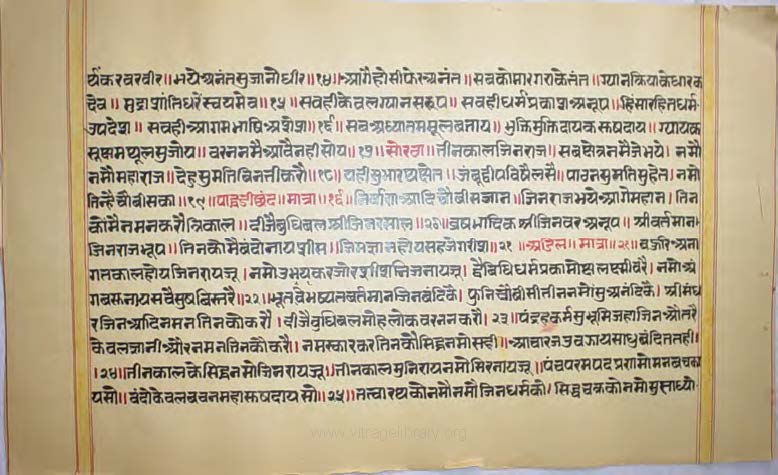 र्थंकरवरवीर॥भयेअनंतसुजानोधीर॥१४॥आगैहोसीफेरअनंत॥सबकोमारगएकेनंत॥ग्यानक्रियाकेधारक
देव॥मुद्राशांतिधरेंस्वयमेव॥१५॥सवहीकेवलग्यानसरूप॥सवहीधर्मप्रकाशअनूप॥हिंसारहितधर्म
उपदेश॥सवहीआगमभाषिअशेश॥१६॥सबअध्यातममूलबताय॥भुक्तिमुक्तिदायकरूपदाय॥ग्यायक
सूक्षमथूलसुजोय॥वरननमैआवैनहीसोय॥१७॥सोरठा॥तीनकालजिनराज॥सबक्षेत्रनमैजेभये॥नमौ
नमौमहाराज॥देहुसुमतिबिनतीकरौं॥१८॥यहीसुभारथक्षेत॥जंबूदीपविषैलसै॥पाउनसुमतिसुहेत॥नमौ
तिन्हैचौबीसका॥१९॥पाद्धडीछंद॥मात्रा॥१६॥निर्वाणआदिचौबीसजान॥जिनराजभयेआगेमहान॥तिन
कोमैनमनकरौत्रिकाल॥दीजैबुधिबलश्रीजिनरसाल॥२०॥व्रषभादिकश्रीजिनवरअनूप॥श्रीवर्तमान
जिनराजभूप॥तिनकोमैबंदोनायशीस॥जिमज्ञानहोयसहजेगरीश॥२१॥अडिल॥मात्रा॥२१॥बहुरिअना
गतकालहोयजिनरायजू।नमोउभयकरजोरशीशनिजनायजू।द्वैबिधिधर्मप्रकामोक्षलएसीवरै।नमोअं
गबसनायसवैसुषबिस्तरै॥२२॥भूतवेभष्यतवर्तमानजिनबंदिकै।फुनिचौबीसीतीननमोंसुअनंदिकै।श्रीमंध
रजिनआदिनमनतिनकोकरौ।दीजैबुधिबलमोहलोकवरननकरौ।२३॥पंद्रहकर्मसुभूमिजहाजिनऔतरै
केवलज्ञानीऔरनमनतिनकौकरै॥नमस्कारकरतिनकौसिद्धनमोसही॥आचारजउवझायसाधुबंदिततही।
।२४॥तीनकालकेसिद्धनमोनिजनरायजू।तीनकालमुनिरायनमोसिरनायजू।पंचपरमपदप्रणमोमनबचका
यसो॥बंदोकेवलबचनमहासुषदायसो॥२५॥तत्वारथकोनमौनमौजिनधर्मको।सिद्धचक्रकोनमोसुसाध्यो
www.vitragelibrary.org